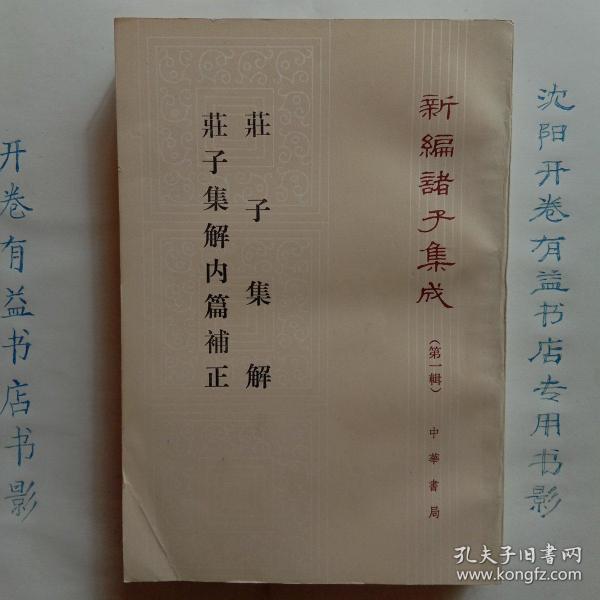 沈阳开卷有益书店专用书影
新編諸子集成
（第一輯）
中華書局
莊子集解
莊子集解内篇補正
开卷有益书店书影
孔夫子旧书网
www.kongfz.com